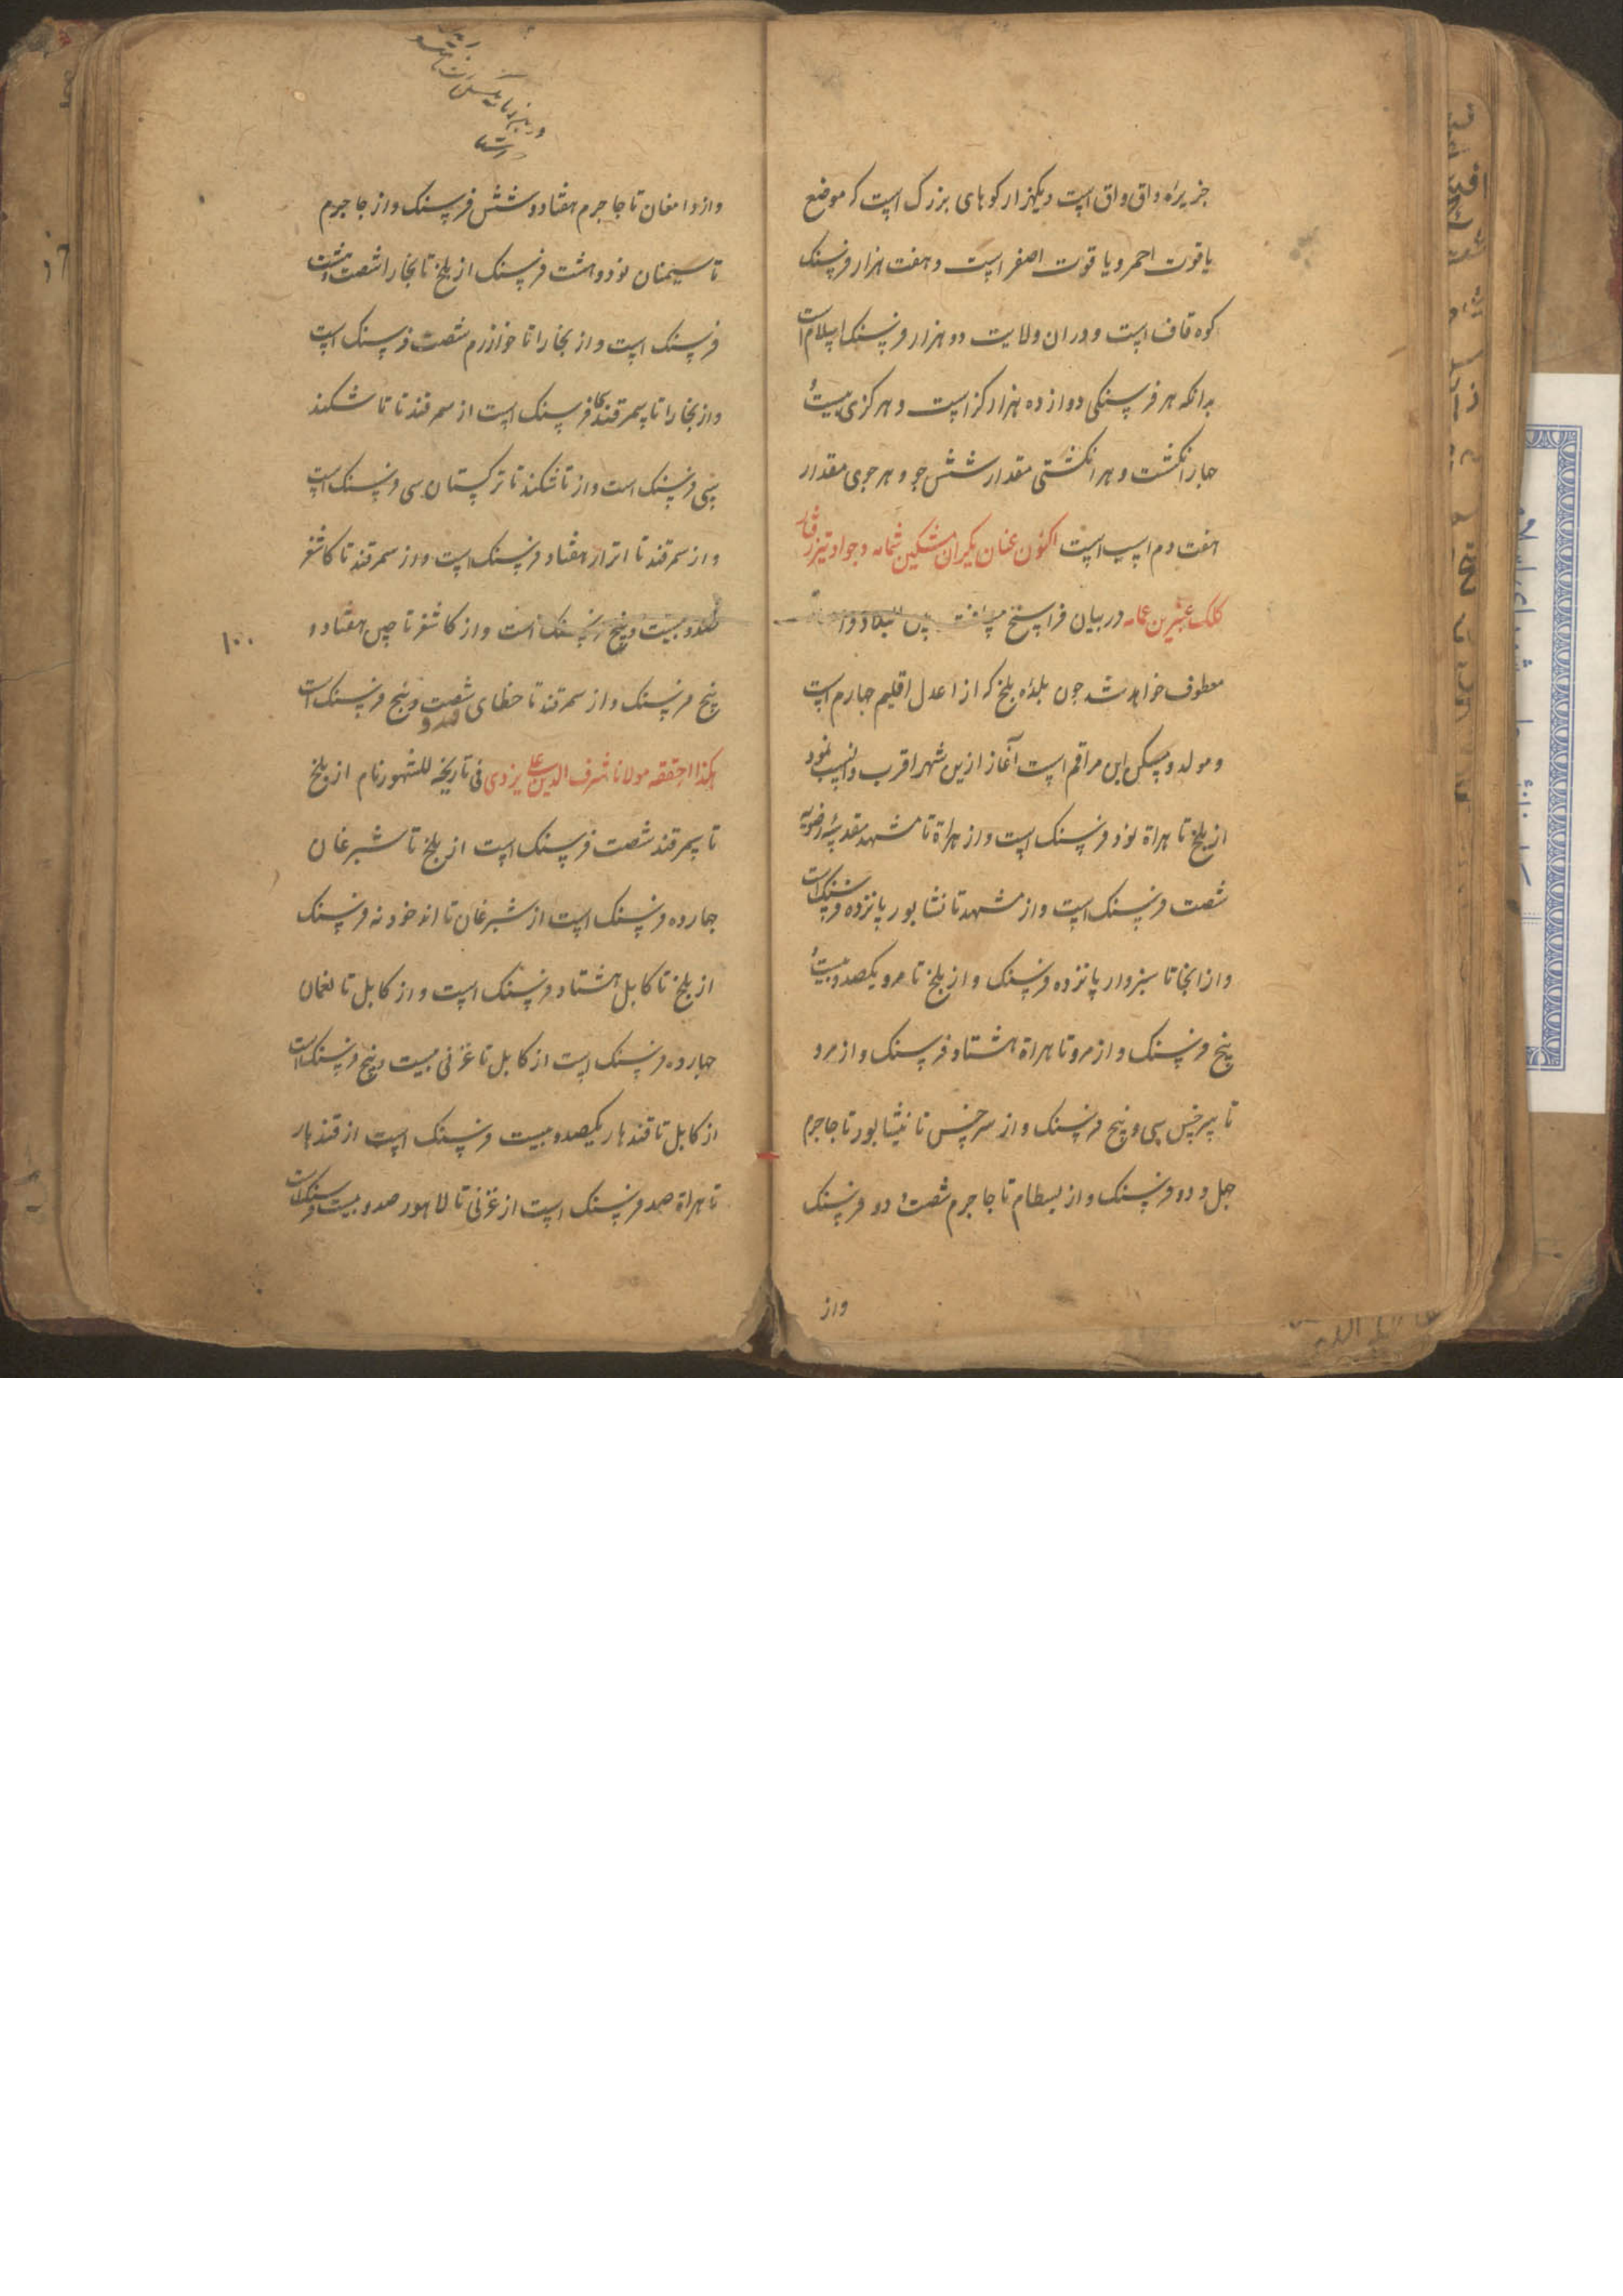 جزیره واق واق است و یکهزار کوهای بزرک است که موضع
یاقوت احمر و یاقوت اصفر است و هفت هزار فرسنک
کوه قاف است و دران ولایت دو هزار فرسنک اسلام است
بدانکه هر فرسنکی دوازده هزار کز است و هر کزی بیست و
جهار انکشت و هر انکشتی مقدار شش جو و هر جوی مقدار
هفت دم اسب است اکنون عنان یکران مشکین شمامه و جواد تیز رفتار
کلک عنبرین عمامه در بیان فراسخ مسافت بلاد
معطوف خواهد شد جون بلده بلخ که از اعدل اقلیم جهارم است
و مولد و مسکن این مراقم است آغاز ازین شهر اقرب و انسب نمود
از بلخ تا هراة نود فرسنک است و از هراة تا مشهد مقدسه رضویه
شصت فرسنک است و از مشهد تا نشابور پانزده فرسنک است
و از انجا تا سبزوار پانزده فرسنک و از بلخ تا مرو یکصد و بیست و
پنج فرسنک و از مرو تا هراة هشتاد فرسنک و از مرو
تا سرخس سی و پنج فرسنک و از سرخس تا نیشابور تا جاجرم
جهل و دو فرسنک و از بسطام تا جاجرم شصت و دو فرسنک
واز
واز دامغان تا جاجرم هفتاد و شش فرسنک و از جاجرم
تا سیمنان نود و هشت فرسنک از بلخ تا بخارا شصت و هشت
فرسنک است و از بخارا تا خوارزم شصت فرسنک است
و از بخارا تا سمرقند فرسنک است از سمرقند تا تاشکند
سی فرسنک است و از تاشکند تا ترکستان سی فرسنک است
و از سمرقند تا اترار هفتاد فرسنک است و از سمرقند تا کاشغر
صد و بیست و پنج فرسنک است و از کاشغر تا چین هفتاد و
۱۰۰
پنج فرسنک و از سمرقند تا خطای صد و شصت و پنج فرسنک است
هکذا حققه مولانا شرف الدین علی یزدی فی تاریخه المشهور نام از بلخ
تا سمرقند شصت فرسنک است از بلخ تا شبرغان
جهارده فرسنک است از شبرغان تا اندخود نه فرسنک
از بلخ تا کابل هشتاد فرسنک است و از کابل تا لغمان
جهارده فرسنک است از کابل تا غزنی بیست و پنج فرسنک است
از کابل تا قندهار یکصد و بیست فرسنک است از قندهار
تا هراة صد فرسنک است از غزنی تا لاهور صد و بیست فرسنک است